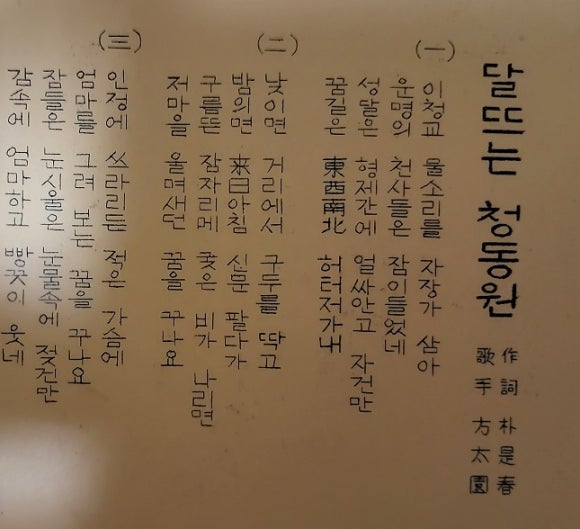 달뜨는 청동원
作詞 朴是春
歌手 方太園
(一)
이청교 물소리를 자장가 삼아
운명의 천사들은 잠이들었네
성달은 형제간에 얼싸안고 자건만
꿈길은 東西南北 허터저가내
(二)
낮이면 거리에서 구두를 딱고
밤의면 来日아침 신문 팔다가
구를뜬 잠자리메 궂은 비가 나리면
저마을 울며새던 꿈을 꾸나요
(三)
인정에 쓰라리든 적은 가슴에
엄마를 그려 보는 꿈을 꾸나요
잠들은 눈시울은 눈물속에 젖건만
감속에 엄마하고 빵끗이 웃네